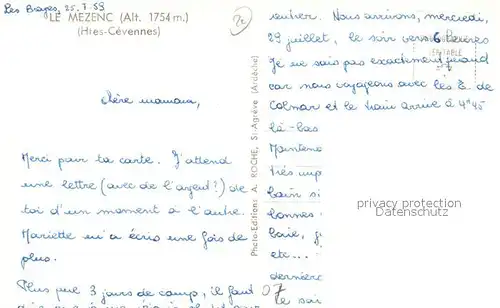 Les Boyes, 25.7.59
LE MEZENC (Alt. 1754 m.)
(Htes-Cévennes)
Chère maman,
Merci pour ta carte. J'attend
une lettre (avec de l'agent?) de
toi d'un moment à l'autre.
Mariette m'a écris une fois de
plus.
Plus que 3 jours de camp, il faut
Photo-Editions A. ROCHE, St-Agrève (Ardèche)
rentrer. Nous arrivons, mercredi,
29 juillet, le soir vers 6 heures
Je ne sais pas exactement quand
car nous voyageons avec les E. de
Colmar et le train arrive à 4h45
là-bas
Maintena
très imp
bain si
bonnes
baie,
etc...
dernière
le sai
VÉRITABLE
privacy protection
Datenschutz
07